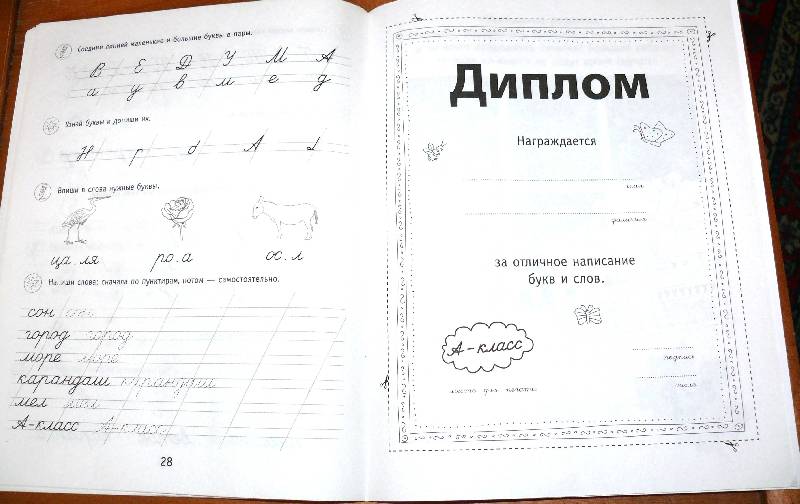 Соедини линией маленькие и большие буквы в пары.
В Е Д У М А
а у в м е д
Узнай буквы и допиши их.
Впиши в слова нужные буквы.
ца.ля ро.а ос.л
Напиши слова: сначала по пунктирам, потом — самостоятельно.
сон сон
город город
море море
карандаш карандаш
мел мел
А-класс А-класс
28
Диплом
Награждается
имя
фамилия
за отличное написание
букв и слов.
А-класс
подпись
место для печати
число